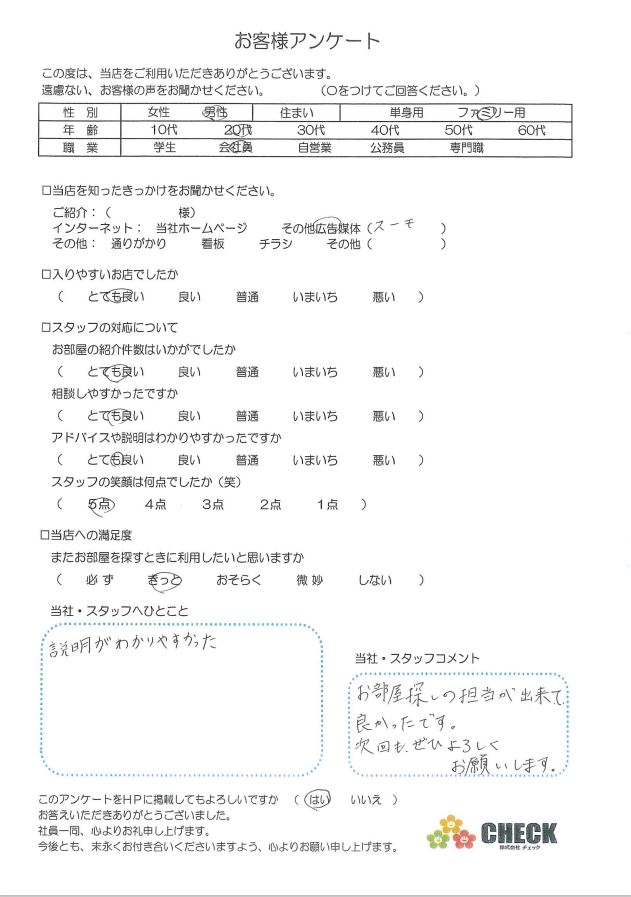 お客様アンケート
この度は、当店をご利用いただきありがとうございます。
遠慮ない、お客様の声をお聞かせください。 （〇をつけてご回答ください。）
性 別 女性 男性 住まい 単身用 ファミリー用
年 齢 10代 20代 30代 40代 50代 60代
職 業 学生 会社員 自営業 公務員 専門職
□当店を知ったきっかけをお聞かせください。
ご紹介：（ 様）
インターネット： 当社ホームページ その他広告媒体（スーモ ）
その他： 通りがかり 看板 チラシ その他（ ）
□入りやすいお店でしたか
（ とても良い 良い 普通 いまいち 悪い ）
□スタッフの対応について
お部屋の紹介件数はいかがでしたか
（ とても良い 良い 普通 いまいち 悪い ）
相談しやすかったですか
（ とても良い 良い 普通 いまいち 悪い ）
アドバイスや説明はわかりやすかったですか
（ とても良い 良い 普通 いまいち 悪い ）
スタッフの笑顔は何点でしたか（笑）
（ 5点 4点 3点 2点 1点 ）
□当店への満足度
またお部屋を探すときに利用したいと思いますか
（ 必ず きっと おそらく 微妙 しない ）
当社・スタッフへひとこと
説明がわかりやすかった
当社・スタッフコメント
お部屋探しの担当が出来て
良かったです。
次回も、ぜひよろしく
お願いします。
このアンケートをHPに掲載してもよろしいですか （ はい いいえ ）
お答えいただきありがとうございました。
社員一同、心よりお礼申し上げます。
今後とも、末永くお付き合いくださいますよう、心よりお願い申し上げます。
CHECK
株式会社 チェック